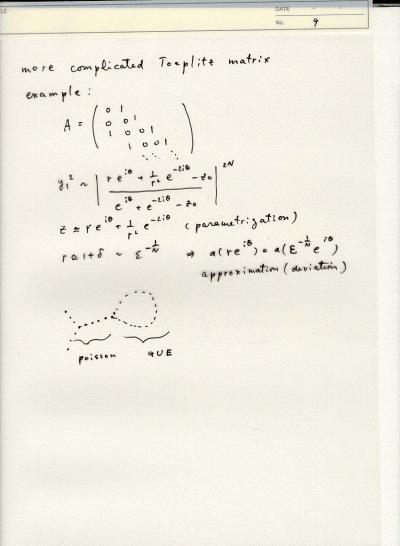 LE
DATE
No. 9
more complicated Toeplitz matrix
example :
A = ( 0 1
0 0 1
1 0 0 1
1 0 0 1
⋱ ⋱ )
y₁² ~ | (r e^{iθ} + 1/r² e^{-2iθ} - z₀) / (e^{iθ} + e^{-2iθ} - z₀) |^{2N}
z ≃ r e^{iθ} + 1/r² e^{-2iθ} (parametrization)
r ≃ 1+δ ~ ε^{-1/N} ⇒ a(re^{iθ}) = a(ε^{-1/N} e^{iθ})
approximation (deviation)
poisson GUE